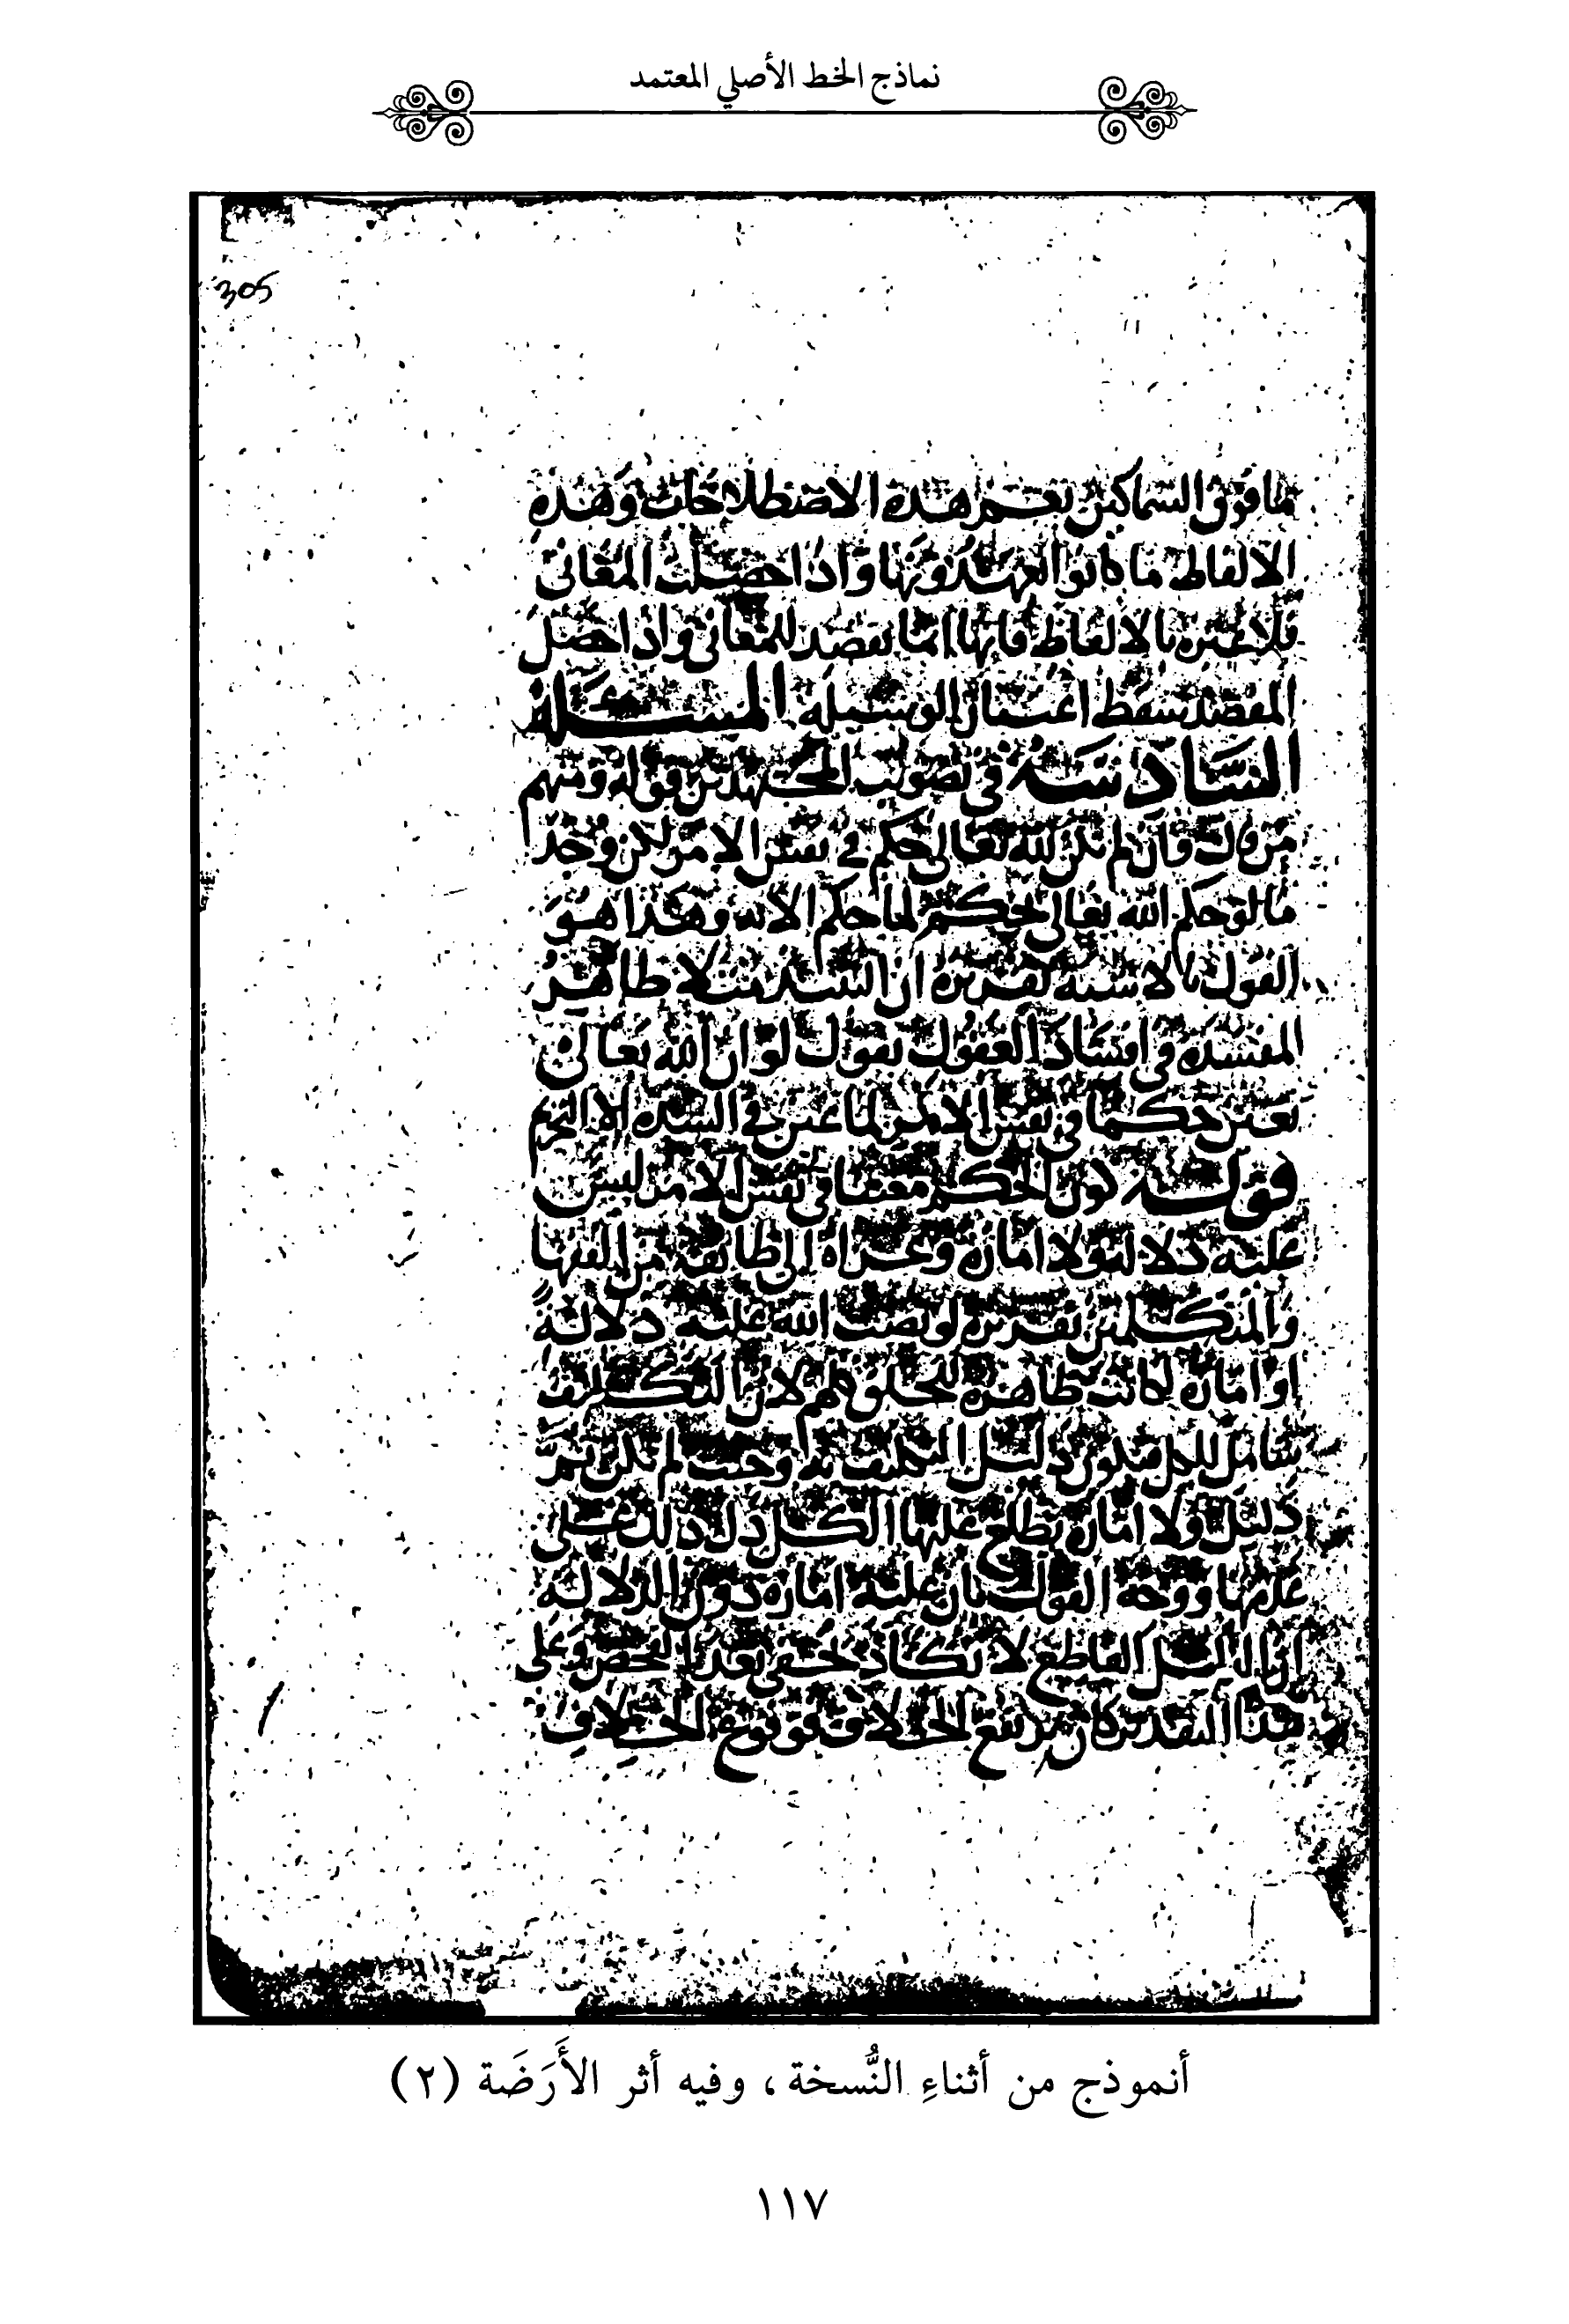 نماذج الخط الأصلي المعتمد
305
ما فوق السماكين نعم هذه الاصطلاحات وهذه
الالفاظ ما كانوا دونها واذا حصلت المعاني
فلا عبرة بالالفاظ فانها انما تقصد للمعاني واذا حصل
المقصد سقط اعتبار الوسيلة المسئلة
السادسة في تصويب المجتهدين قوله ومنهم
من قال فان لم يكن لله تعالى حكم في نفس الامر لكن وجد
ما لو حكم الله تعالى بحكم لما حكم الا به وهذا هو
القول بالاشبه تقريره ان مثلا ظاهر
المفسدة في افساد العقول نقول لو ان الله تعالى
تعين حكما في نفس الامر لما عين في الا التحريم
قوله كون الحكم معينا في نفس الامر ليس
عليه دلالة ولا امارة وعزاه الى طائفة من الفقها
والمتكلمين تقريره لو نصب الله عليه دلالة
او امارة لكانت ظاهرة للخلق كلهم لان التكليف
شامل للكل فيكون دليل التكليف به وحيث لم يكن ثم
دليل ولا امارة يطلع عليها الكل دل ذلك على
عدمها ووجه القول بان عليه امارة دون الدلالة
ان الدليل القاطع لا يكاد يخفى بعد الفحص وعلى
هذا التقدير كان يرتفع الخلاف فوقوع الخلاف
أنموذج من أثناءِ النُّسخة، وفيه أثر الأَرَضَة (٢)
١١٧